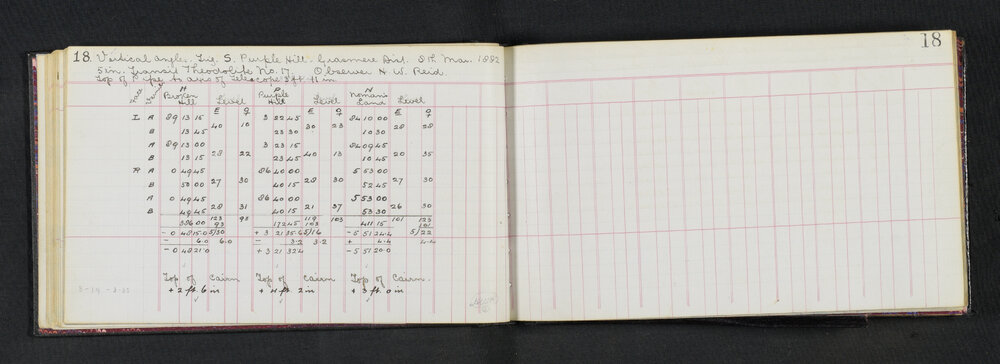 18 Vertical angle. Trig. S. Purple Hill. Grasmere Dist. 8th Mar. 1882
5 in. Transit Theodolite No. 17. Observer H. W. Reid
Top of Pipe to axis of telescope 3 ft 11 in
18
Face H Broken Hill Level P Purple Hill Level N Nomans Land Level
E O E O E O
L A 89 13 15 3 22 45 84 10 00
40 10 30 23 28 28
B 13 45 23 30 10 30
A 89 13 00 3 23 15 84 09 45
28 22 40 13 20 35
B 13 15 23 45 10 45
R A 0 49 45 86 40 00 5 53 00
27 30 28 30 27 30
B 50 00 40 15 52 45
A 0 49 45 86 40 00 5 53 00
28 31 21 37 26 30
B 49 45 40 15 53 30
386 00 123 93 172 45 119 103 411 15 101 123
93 103 101
- 0 48 15.0 5/30 + 3 21 35.6 5/16 - 5 51 24.4 5/22
- 6.0 6.0 - 3.2 3.2 + 4.4 4.4
- 0 48 21.0 + 3 21 32.4 - 5 51 20.0
Top of Cairn Top of Cairn Top of Cairn
+ 2 ft. 6 in + 4 ft 2 in + 3 ft. 0 in